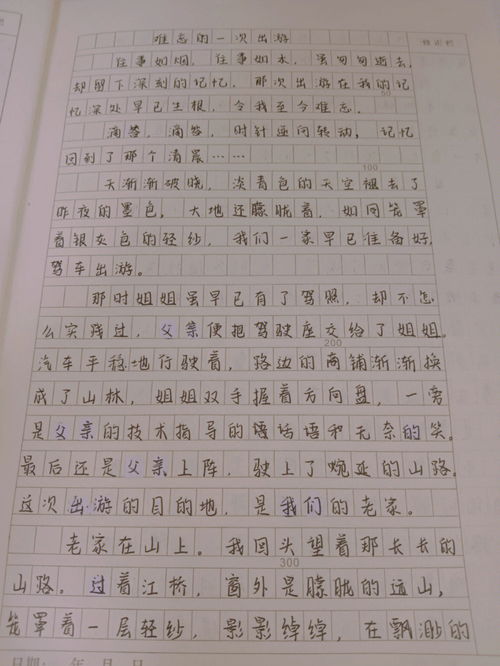 难忘的一次出游
往事如烟，往事如水，虽匆匆逝去，
却留下深刻的记忆，那次出游在我的记
忆深处早已生根，令我至今难忘。
滴答，滴答，时针逆向转动，记忆
回到了那个清晨……
100
天渐渐破晓，淡青色的天空褪去了
昨夜的墨色，大地还朦胧着，如同笼罩
着银灰色的轻纱，我们一家早已准备好，
驾车出游。
那时姐姐虽早已有了驾照，却不怎
么实践过，父亲便把驾驶座交给了姐姐。
200
汽车平稳地行驶着，路边的商铺渐渐换
成了山林，姐姐双手握着方向盘，一旁
是父亲的技术指导的话语和无奈的笑。
最后还是父亲上阵，驶上了蜿蜒的山路。
这次出游的目的地，是我们的老家。
老家在山上。我回头望着那长长的
300
山路。过着江桥，窗外是朦胧的远山，
笼罩着一层轻纱，影影绰绰，在飘渺的
日期： 年 月 日